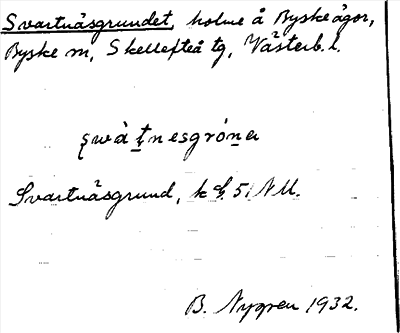 Svartnäsgrundet, holme å Byske ägor,
Byske sn, Skellefteå tg, Västerb. l.
Svartnäsgrund, k 51 NU.
B. Nygren 1932.